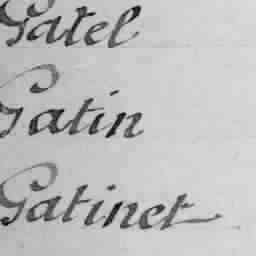 Gatel
Gatin
Gatinet